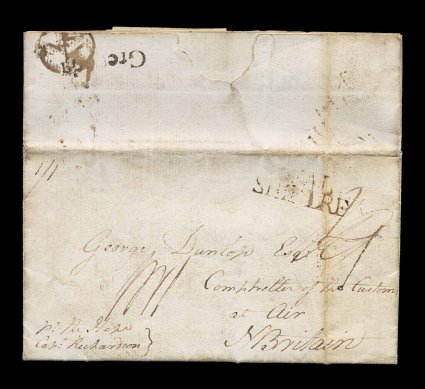 Gre
DEAL
SHIP LRE
George Dunlop Esqr
Comptroller of the Customs
at Air
N Britain
pr the Hope
Capt Richardson